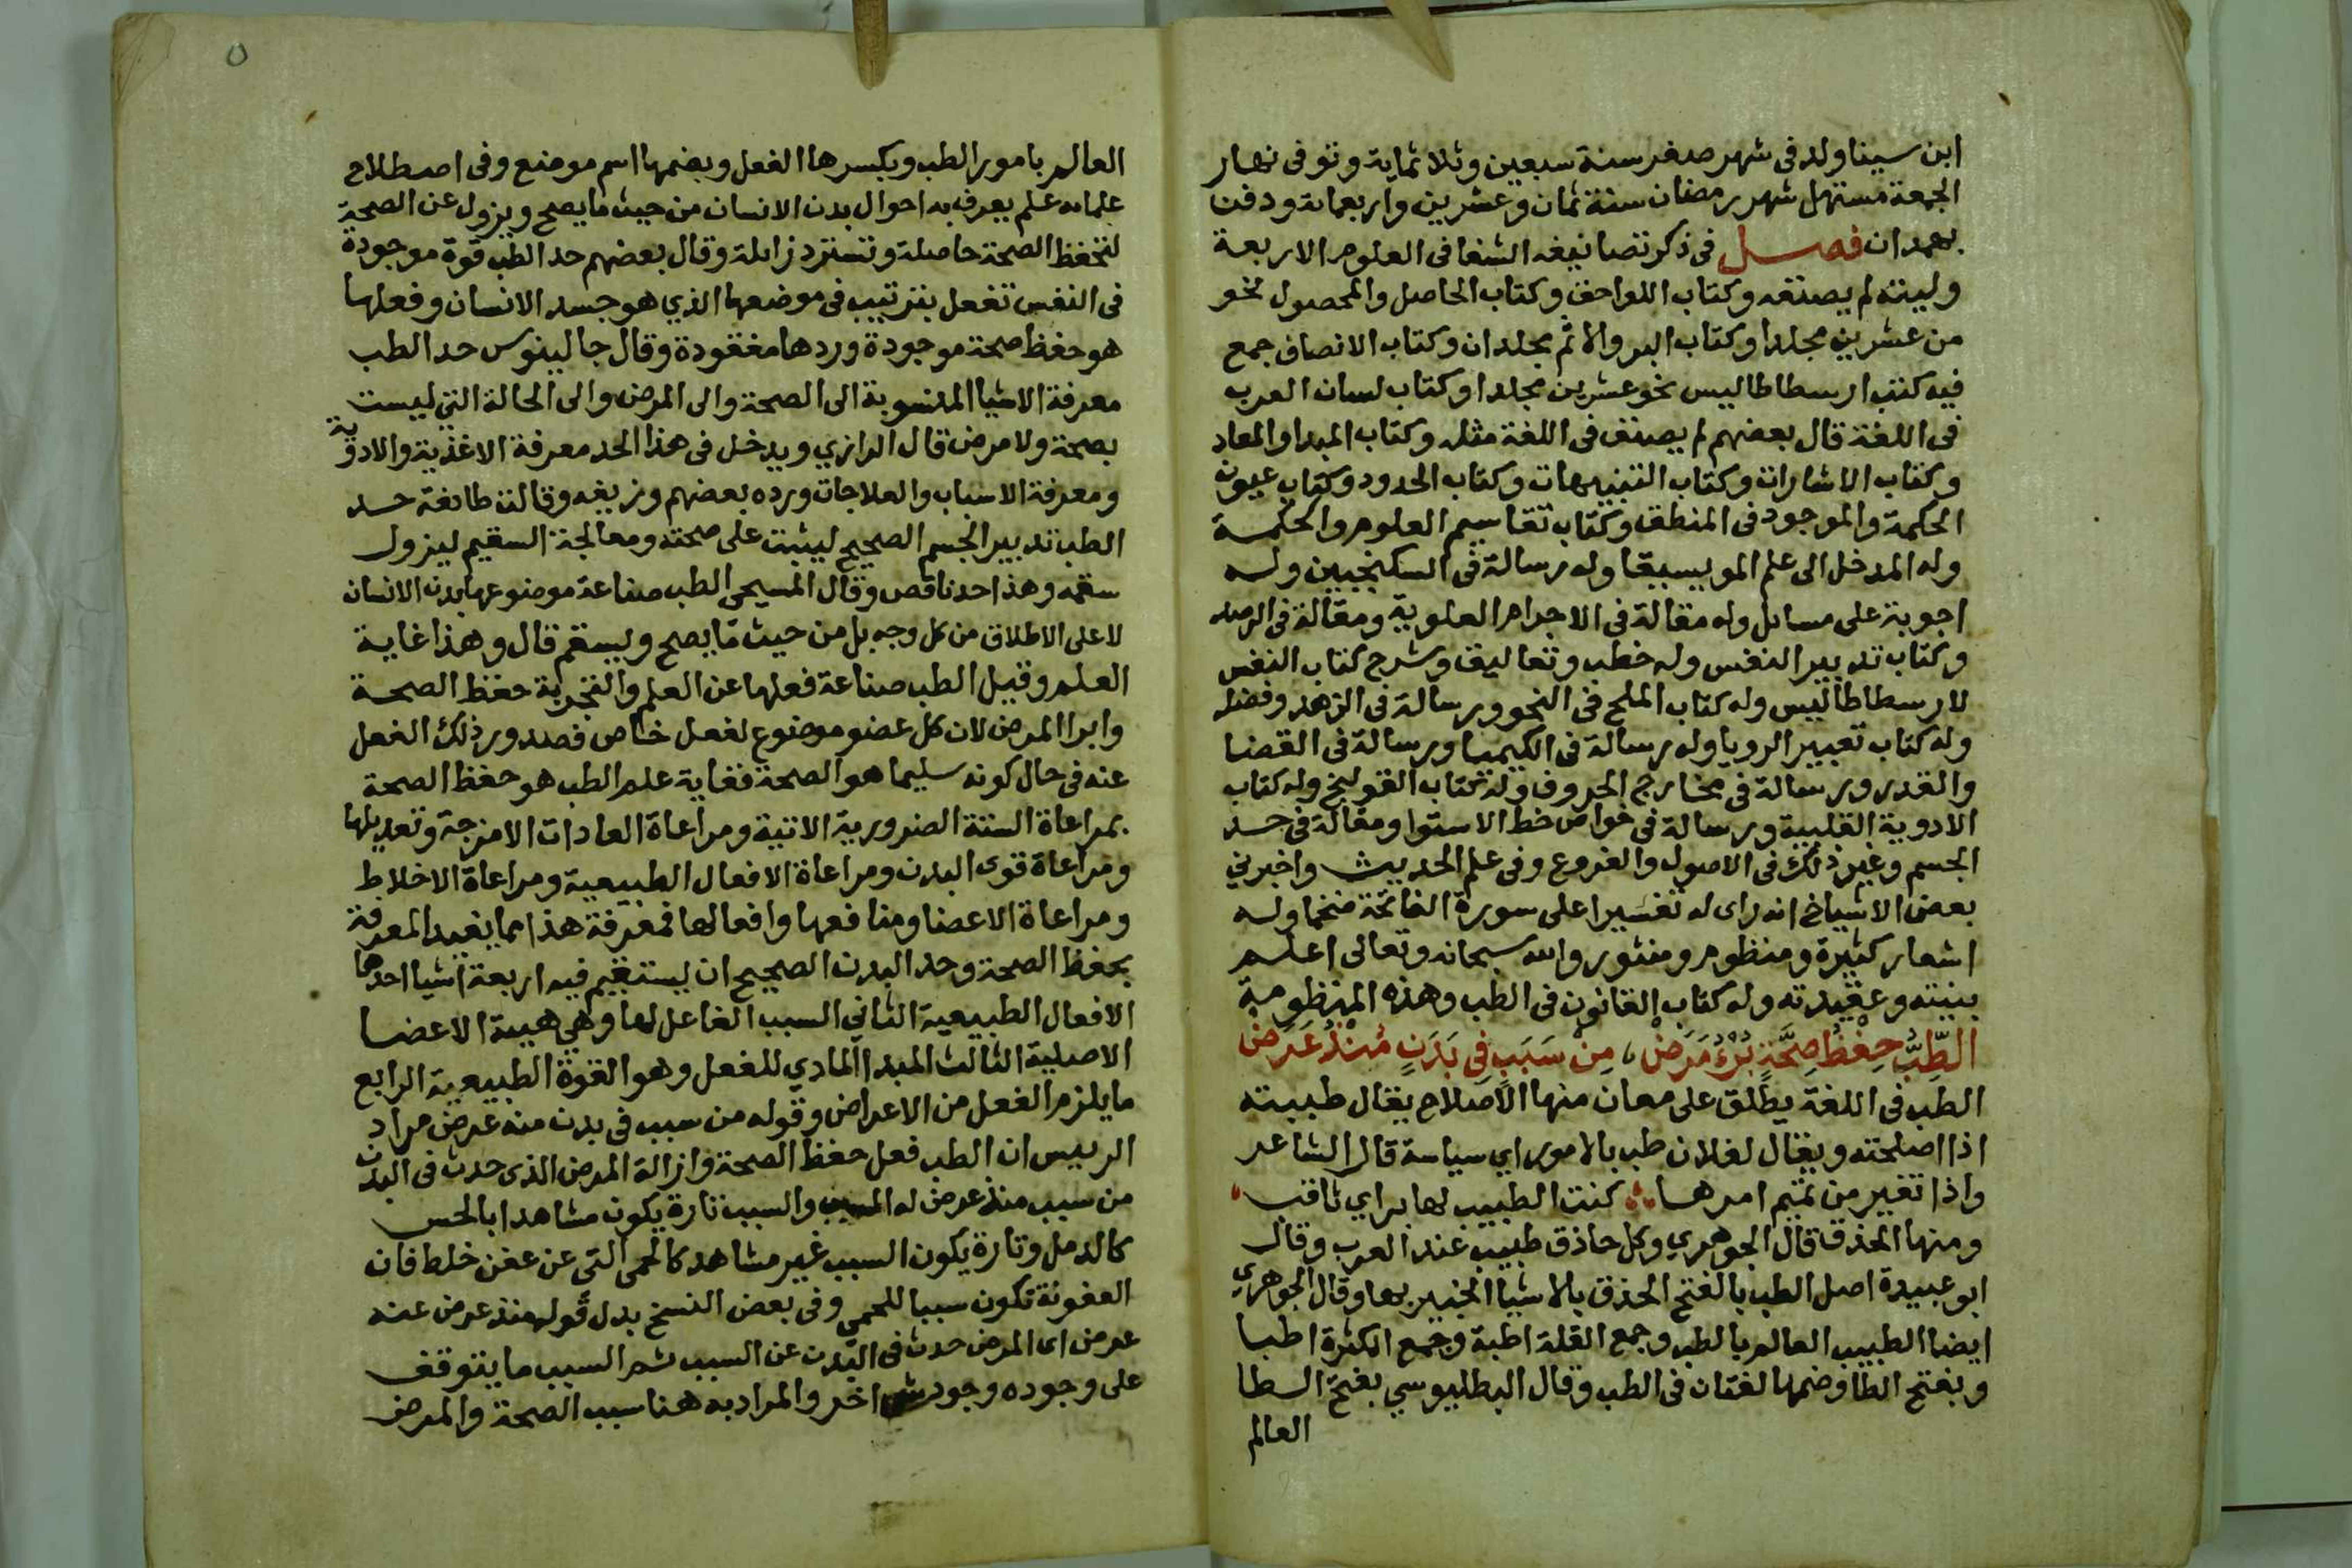 ابن سينا ولد في شهر صفر سنة سبعين وثلاثماية وتوفي نهار
الجمعة مستهل شهر رمضان سنة ثمان وعشرين واربعماية ودفن
بهمدان فصل في ذكر تصانيفه الشفا في العلوم الاربعة
وليته لم يصنفه وكتاب اللواحق وكتاب الحاصل والمحصول نحو
من عشرين مجلدا وكتاب البر والاثم مجلدان وكتاب الانصاف جمع
فيه كتب ارسطاطاليس نحو عشرين مجلدا وكتاب لسان العرب
في اللغة قال بعضهم لم يصنف في اللغة مثله وكتاب المبدا والمعاد
وكتاب الاشارات وكتاب التنبيهات وكتاب الحدود وكتاب عيون
الحكمة والموجود في المنطق وكتاب تقاسيم العلوم والحكمة
وله المدخل الى علم المويسيقا وله رسالة في السكنجبين وله
اجوبة على مسائل وله مقالة في الاجرام العلوية ومقالة في الرصد
وكتاب تدبير النفس وله خطب وتعاليق وشرح كتاب النفس
لارسطاطاليس وله كتاب الملح في النحو ورسالة في الزهد وفضله
وله كتاب تعبير الرويا وله رسالة في الكيميا ورسالة في القضا
والقدر ورسالة في مخارج الحروف وله كتاب القولنج وله كتاب
الادوية القلبية ورسالة في خواص خط الاستوا ومقالة في حد
الجسم وغير ذلك في الاصول والفروع وفي علم الحديث واخبرني
بعض الاشياخ انه راى له تفسيرا على سورة الفاتحة ضخما وله
اشعار كثيرة ومنظوم ومنثور والله سبحانه وتعالى اعلم
بنيته وعقيدته وله كتاب القانون في الطب وهذه المنظومة
الطِّبُّ حِفْظُ صِحَّةٍ بُرْءُ مَرَضْ، مِنْ سَبَبٍ فِي بَدَنٍ مُنْذُ عَرَضْ
الطب في اللغة يطلق على معان منها الاصلاح يقال طببته
اذا اصلحته ويقال لفلان طب بالامور اي سياسة قال الشاعر
واذا تغير من تميم امرها كنت الطبيب لها براي ثاقب
ومنها الحذق قال الجوهري وكل حاذق طبيب عند العرب وقال
ابو عبيدة اصل الطب بالفتح الحذق بالاشيا الخبير بها وقال الجوهري
ايضا الطبيب العالم بالطب وجمع القلة اطبة وجمع الكثرة اطبا
وبفتح الطا وضمها لغتان في الطب وقال البطليوسي بفتح الطا
العالم
٥
العالم بامور الطب وبكسرها الفعل وبضمها اسم موضع وفي اصطلاح
علمائه علم يعرف به احوال بدن الانسان من حيث ما يصح ويزول عن الصحة
لتحفظ الصحة حاصلة وتسترد زائلة وقال بعضهم حد الطب قوة موجودة
في النفس تفعل بترتيب في موضعها الذي هو جسد الانسان وفعلها
هو حفظ صحة موجودة وردها مفقودة وقال جالينوس حد الطب
معرفة الاشيا المنسوبة الى الصحة والى المرض والى الحالة التي ليست
بصحة ولا مرض قال الرازي ويدخل في هذا الحد معرفة الاغذية والادوية
ومعرفة الاسباب والعلاجات ورده بعضهم وزيفه وقالت طائفة حد
الطب تدبير الجسم الصحيح ليثبت على صحته ومعالجة السقيم ليزول
سقمه وهذا حد ناقص وقال المسيحي الطب صناعة موضوعها بدن الانسان
لا على الاطلاق من كل وجه بل من حيث ما يصح ويسقم قال وهذا غاية
العلم وقيل الطب صناعة فعلها عن العلم والتجربة حفظ الصحة
وابرا المرض لان كل عضو موضوع لفعل خاص فصدور ذلك الفعل
عنه في حال كونه سليما هو الصحة فغاية علم الطب هو حفظ الصحة
بمراعاة الستة الضرورية الاتية ومراعاة العادات الامزجة وتعديلها
ومراعاة قوى البدن ومراعاة الافعال الطبيعية ومراعاة الاخلاط
ومراعاة الاعضا ومنافعها وافعالها فمعرفة هذا مما يفيد المعرفة
بحفظ الصحة وحد البدن الصحيح ان يستقيم فيه اربعة اشيا احدها
الافعال الطبيعية الثاني السبب الفاعل لها وهي هيئة الاعضا
الاصلية الثالث المبدا المادي للفعل وهو القوة الطبيعية الرابع
ما يلزم الفعل من الاعراض وقوله من سبب في بدن منه عرض مراد
الرييس ان الطب فعل حفظ الصحة وازالة المرض الذي حدث في البدن
من سبب منذ عرض له والسبب تارة يكون مشاهدا بالحس
كالدمل وتارة يكون السبب غير مشاهد كالحمى التي عن عفن خلط فان
العفونة تكون سببا للحمى وفي بعض النسخ بدل قوله منذ عرض عنه
عرض اى المرض حدث في البدن عن السبب ثم السبب ما يتوقف
على وجوده وجود شي اخر والمراد به هنا سبب الصحة والمرض